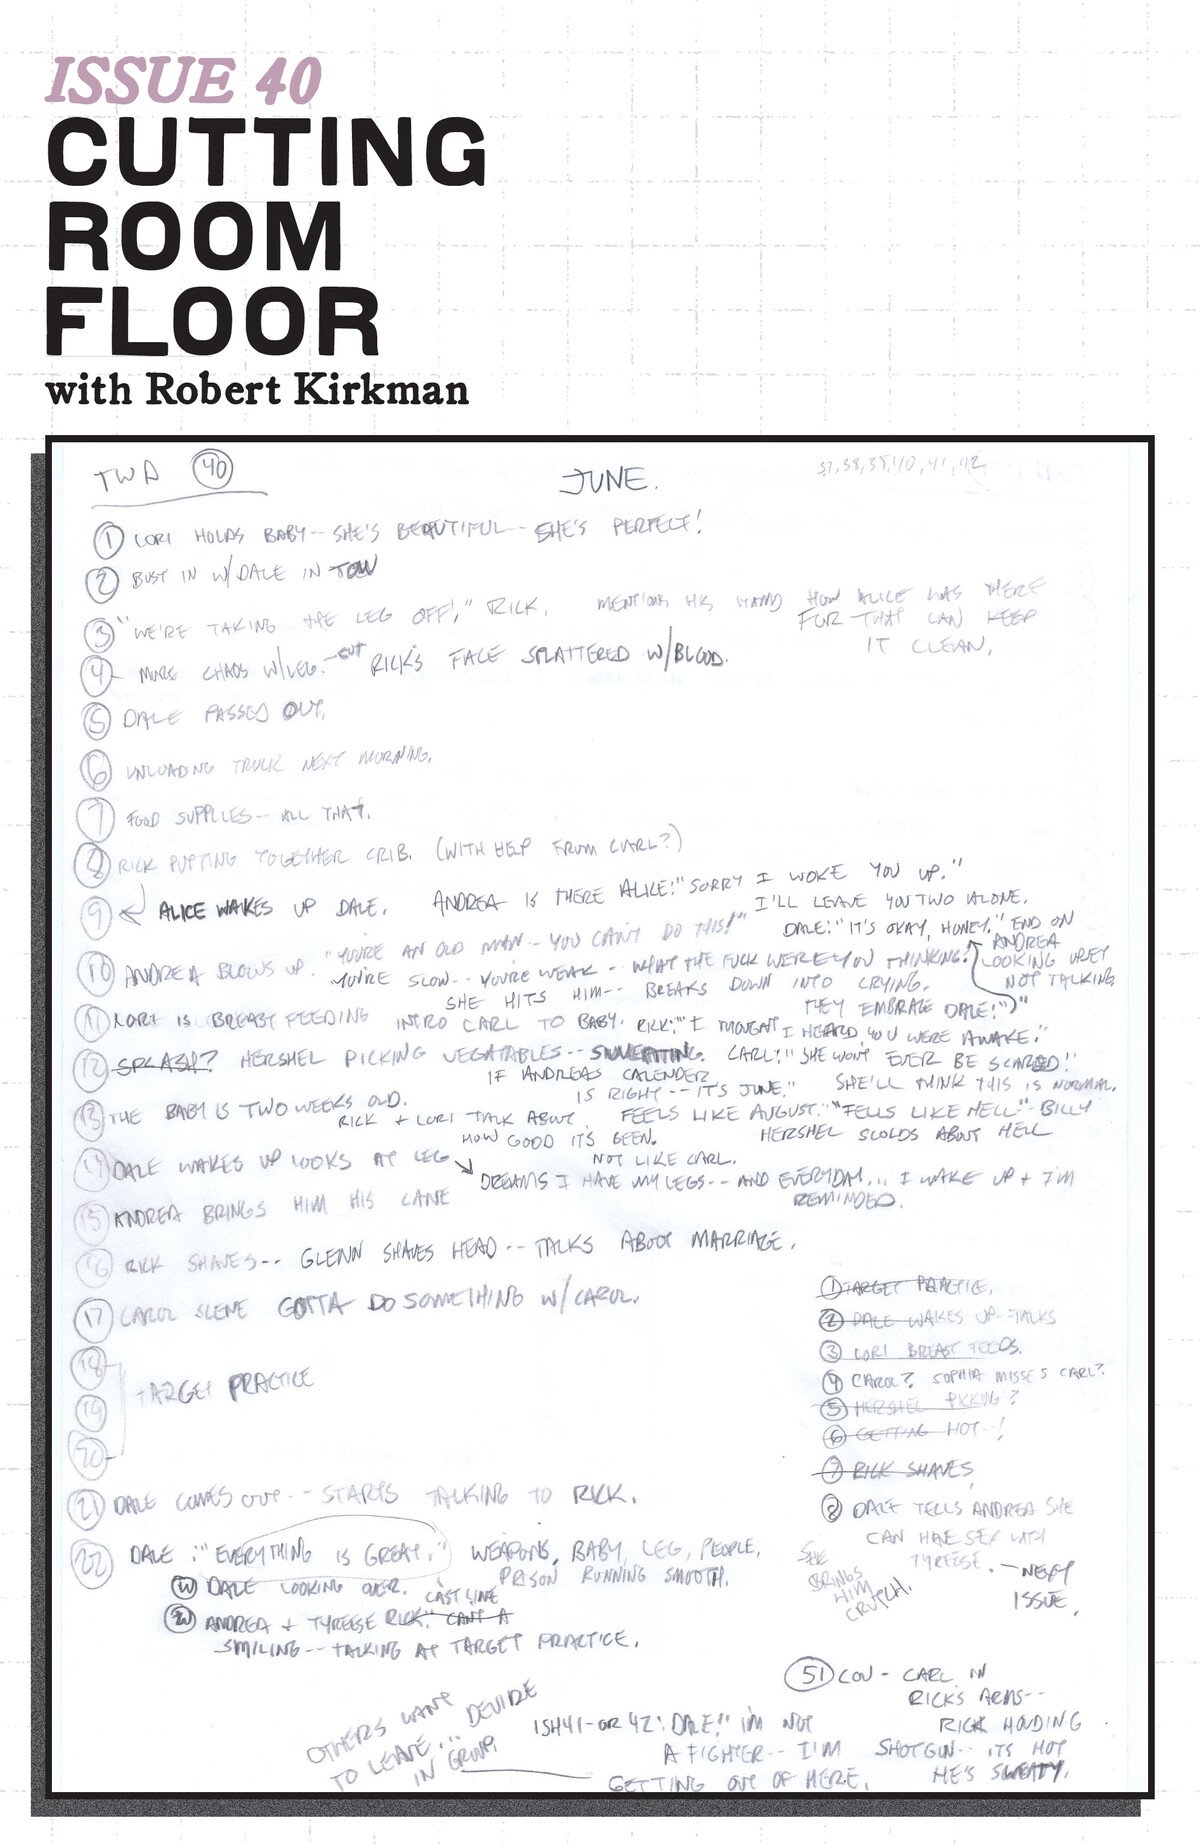 ISSUE 40
CUTTING
ROOM
FLOOR
with Robert Kirkman
TWD 40
JUNE.
37,38,39,40,41,42
1 LORI HOLDS BABY-- SHE'S BEAUTIFUL-- SHE'S PERFECT!
2 BUST IN W/DALE IN TOW
3 "WE'RE TAKING THE LEG OFF!," RICK. MENTIONS HIS HAND HOW ALICE WAS THERE
FOR THAT CAN KEEP
IT CLEAN.
4 - MORE CHAOS W/LEG.-CUT RICK'S FACE SPLATTERED W/BLOOD.
5 DALE PASSED OUT.
6 UNLOADING TRUCK NEXT MORNING.
7 FOOD SUPPLIES-- ALL THAT.
8 RICK PUTTING TOGETHER CRIB. (WITH HELP FROM CARL?)
9 ALICE WAKES UP DALE. ANDREA IS THERE ALICE:"SORRY I WOKE YOU UP."
I'LL LEAVE YOU TWO ALONE.
DALE:"IT'S OKAY, HONEY." END ON
ANDREA
LOOKING UPSET
NOT TALKING.
10 ANDREA BLOWS UP. "YOU'RE AN OLD MAN-- YOU CAN'T DO THIS!"
YOU'RE SLOW-- YOU'RE WEAK-- WHAT THE FUCK WERE YOU THINKING?
SHE HITS HIM-- BREAKS DOWN INTO CRYING.
THEY EMBRACE DALE:")"
11 LORI IS BREAST FEEDING INTRO CARL TO BABY. RICK:"I THOUGHT I HEARD YOU WERE AWAKE."
12 SPLASH? HERSHEL PICKING VEGATABLES-- SWEATING. CARL:"SHE WON'T EVER BE SCARED!"
IF ANDREAS CALENDER
IS RIGHT-- IT'S JUNE." SHE'LL THINK THIS IS NORMAL.
13 THE BABY IS TWO WEEKS OLD. FEELS LIKE AUGUST." "FELLS LIKE HELL"-BILLY
RICK + LORI TALK ABOUT
HOW GOOD IT'S BEEN. HERSHEL SCOLDS ABOUT HELL
NOT LIKE CARL.
14 DALE WAKES UP LOOKS AT LEG DREAMS I HAVE MY LEGS-- AND EVERYDAY... I WAKE UP + I'M
REMINDED.
15 ANDREA BRINGS HIM HIS CANE
16 RICK SHAVES-- GLENN SHAVES HEAD-- TALKS ABOUT MARRIAGE.
17 CAROL SCENE GOTTA DO SOMETHING W/CAROL.
18
19 TARGET PRACTICE
20
21 DALE COMES OUT-- STARTS TALKING TO RICK.
22 DALE:"EVERYTHING IS GREAT." WEAPONS, BABY, LEG, PEOPLE,
PRISON RUNNING SMOOTH.
W DALE LOOKING OVER. LAST LINE
W ANDREA + TYREESE RICK:" CAN'T A
SMILING-- TALKING AT TARGET PRACTICE.
1 TARGET PRACTICE.
2 DALE WAKES UP--TALKS
3 LORI BREAST FEEDS.
4 CAROL? SOPHIA MISSES CARL?
5 HERSHEL PICKING?
6 GETTING HOT--!
7 RICK SHAVES
8 DALE TELLS ANDREA SHE
CAN HAVE SEX WITH
TYREESE. -NEXT
ISSUE.
SHE
BRINGS
HIM
CRUTCH.
OTHERS WANT
TO LEAVE... DEVIDE
IN GROUP
ISH41-OR 42: DALE:" I'M NOT
A FIGHTER-- I'M
GETTING OUT OF HERE.
51 COV - CARL IN
RICK'S ARMS--
RICK HOLDING
SHOTGUN-- ITS HOT
HE'S SWEATY.